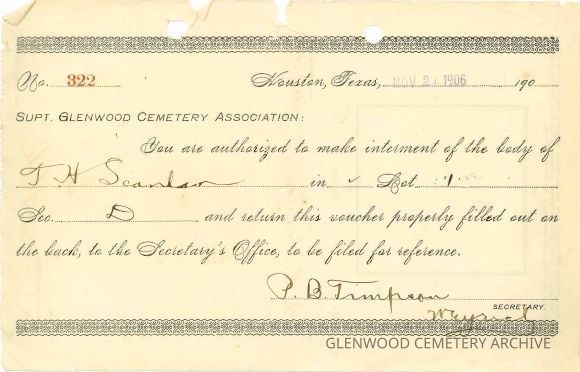 No. 322 Houston, Texas, NOV 2 1906 190
SUPT. GLENWOOD CEMETERY ASSOCIATION:
You are authorized to make interment of the body of
T. H. Scanlan in Lot 1
Sec. D and return this voucher properly filled out on
the back, to the Secretary's Office, to be filed for reference.
P. B. Timpson
SECRETARY.
GLENWOOD CEMETERY ARCHIVE